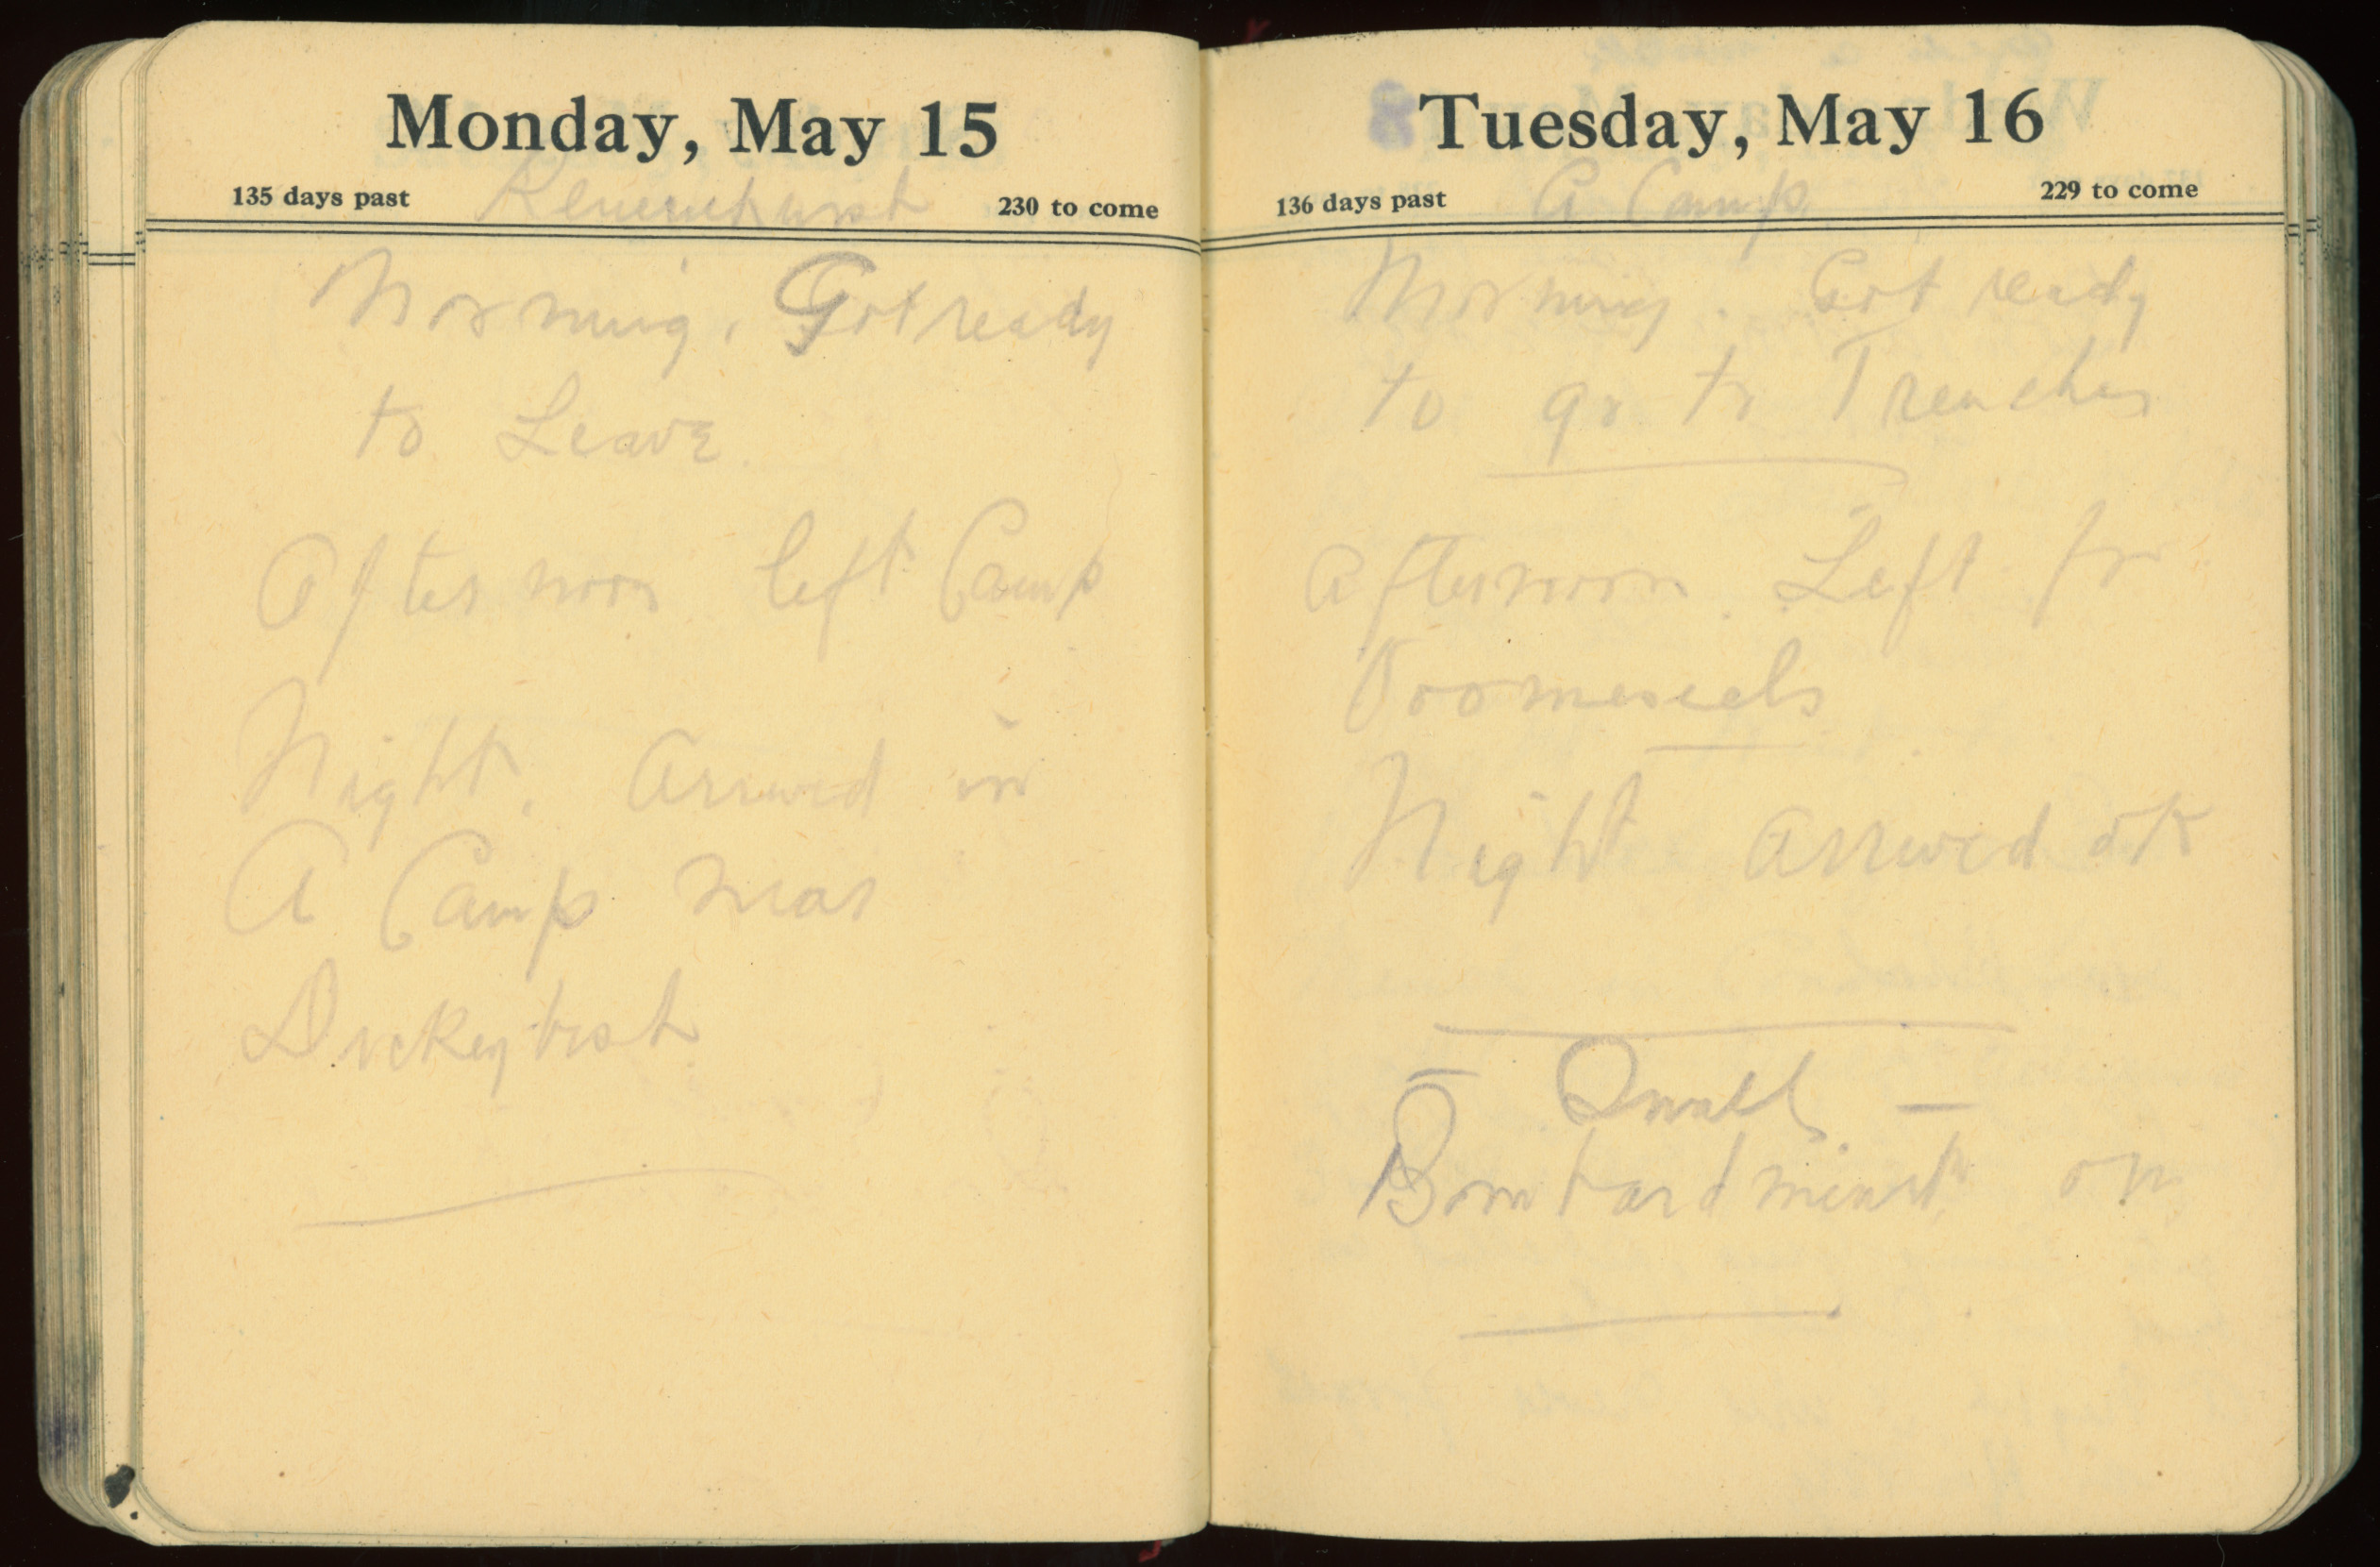 Monday, May 15
135 days past
230 to come
Morning. Got ready
to Leave.
Afternoon left Camp
Night. Arrived in
A Camp near
Dickeybush
Tuesday, May 16
136 days past A Camp 229 to come
Morning. Got ready
to go to Trenches
Afternoon. Left for
Night Arrived ok
— Small —
Bombardment on